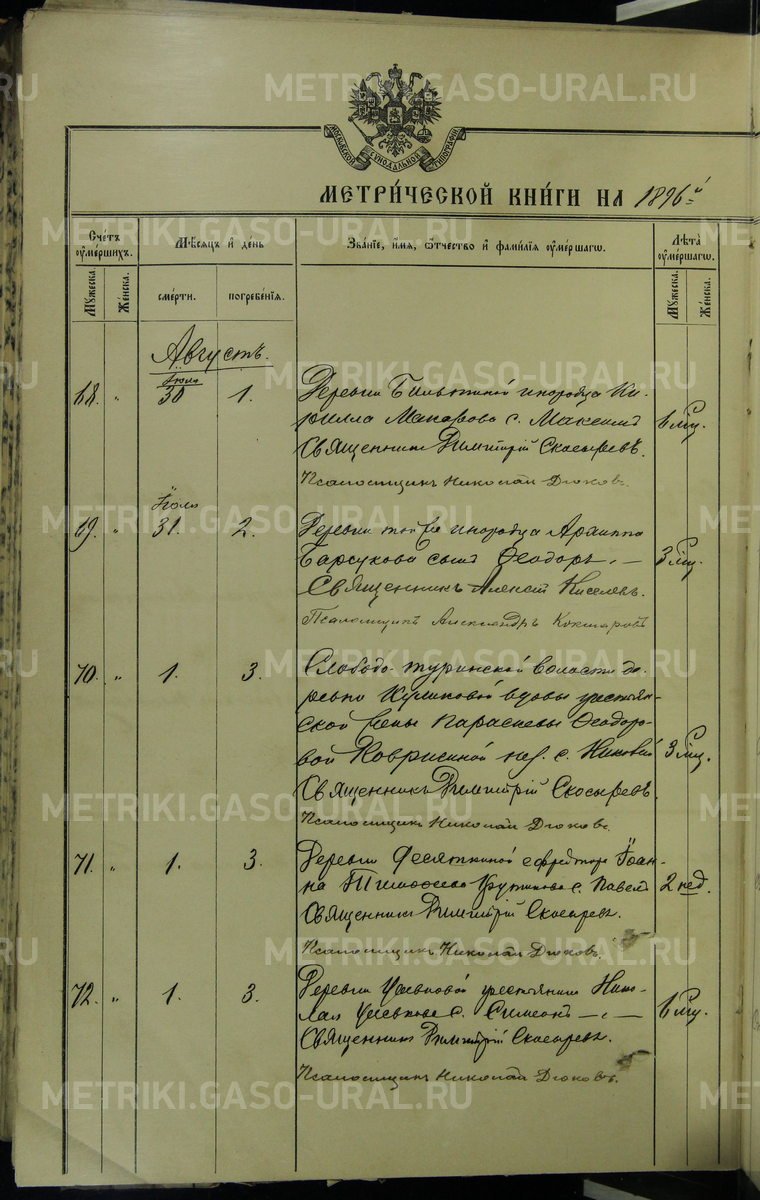 МОСКОВСКОЙ СѴНОДАЛЬНОЙ ТИПОГРАФІИ
МЕТРИ́ЧЕСКОЙ КНИ́ГИ НА 1896 й
Сче́тъ ᲂу҆ме́ршихъ.
Мѣ́сяцъ и҆ де́нь
Зва́нїе, и҆́мя, ѻ҆́тчество и҆ фами́лїя ᲂу҆ме́ршагѡ.
Лѣ́та ᲂу҆ме́ршагѡ.
Мꙋ́жеска.
Же́нска.
сме́рти.
погребе́нїя.
Мꙋ́жеска.
Же́нска.
Августъ.
68. " Іюля 30 1.
Деревни инородца Ки-
рилла Макарова с. Максимъ
Священникъ Димитрій Скосыревъ.
Псаломщикъ Николай Дюковъ.
69. " Іюля 31. 2.
Деревни той же инородца Архиппа
Барсукова сынъ Ѳеодоръ. — 3 мѣс.
Священникъ Алексій Киселевъ.
Псаломщикъ Александръ Кокшаровъ
70. " 1. 3.
Слободо-туринской волости де-
ревни Куликовой вдовы крестьян-
ской жены Параскевы Ѳеодоро-
вой нез. с. 3 мѣс.
Священникъ Димитрій Скосыревъ.
Псаломщикъ Николай Дюковъ.
71. " 1. 3.
Деревни Десяткиной ефрейтора Іоан-
на Тимоѳеева с. Павелъ 2 нед.
Священникъ Димитрій Скосыревъ.
Псаломщикъ Николай Дюковъ.
72. " 1. 3.
Деревни крестьянина Нико-
лая с. Симеонъ — " —
Священникъ Димитрій Скосыревъ.
Псаломщикъ Николай Дюковъ.
METRIKI.GASO-URAL.RU